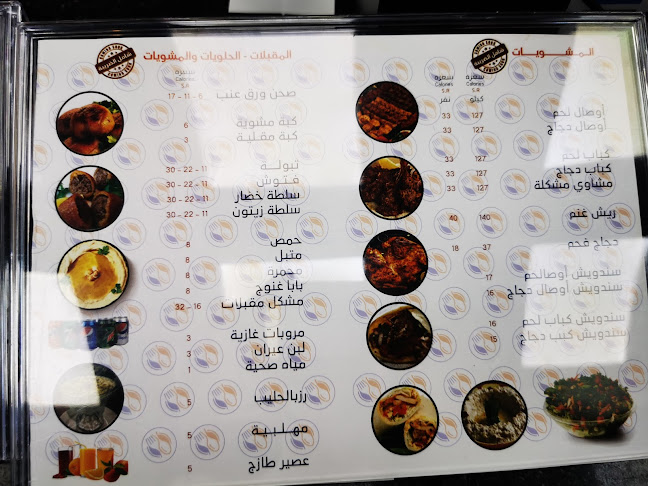 المشويات
سعرة
Calories
S.R
نفر
سعرة
Calories
S.R
كيلو
أوصال لحم 127 33
أوصال دجاج
كباب لحم 127 33
كباب دجاج 127 33
مشاوي مشكلة 127 33
ريش غنم 140 40
دجاج فحم 37 18
سندويش أوصالحم 17
سندويش أوصال دجاج 16
سندويش كباب لحم 16
سندويش كبب دجاج 15
المقبلات - الحلويات والمشويات
شامل الضريبة
سعرة
Calories
S.R
صحن ورق عنب 6 - 11 - 17
كبة مشوية 6
كبة مقلية 3
تبولة 11 - 22 - 30
فتوش 11 - 22 - 30
سلطة خضار 11 - 22 - 30
سلطة زيتون 11 - 22 - 30
حمص 8
متبل 8
محمرة 8
بابا غنوج 8
مشكل مقبلات 16 - 32
مروبات غازية 3
لبن عيران 3
مياه صحية 1
رزبالحليب 5
مهلبية 5
عصير طازج 5